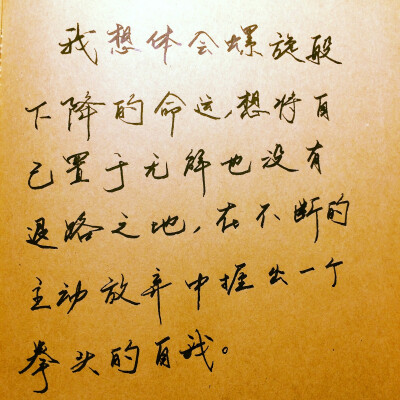 我想体会螺旋般
下降的命运,想将自
己置于无解也没有
退路之地,在不断的
主动放弃中握出一个
拳头的自我。